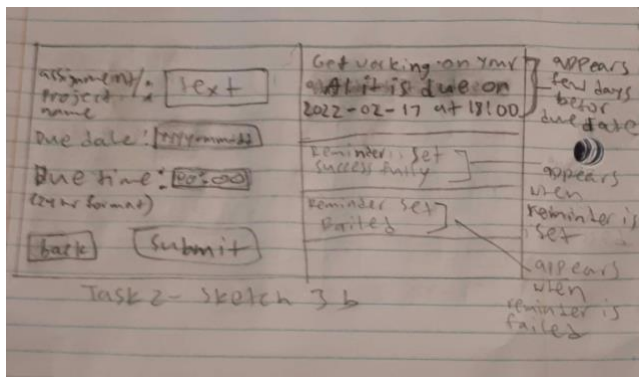 assignment/:
project
name
text
Due date: yyyymmdd
Due time: 00:00
(24hr format)
back
submit
Get working on your
it is due on
2022-02-17 at 18:00
Reminder set
successfully
Reminder set
Failed
appears
few days
befor
due date
appears
when
reminder is
set
appears
when
reminder is
failed
Task 2- Sketch 3b